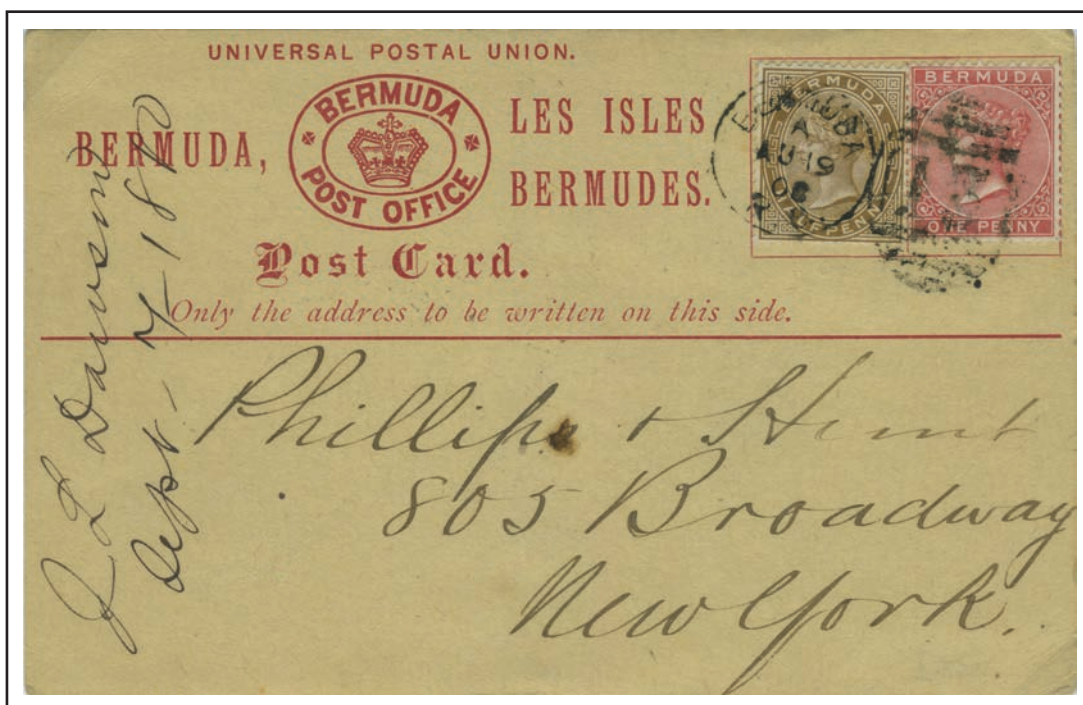 UNIVERSAL POSTAL UNION.
BERMUDA,
BERMUDA
POST OFFICE
LES ISLES
BERMUDES.
Post Card.
Only the address to be written on this side.
BERMUDA
HALFPENNY
BERMUDA
ONE PENNY
BERMUDA
AU 19
Phillips & Hunt
805 Broadway
New York.
J L
Sept 7 - 1880